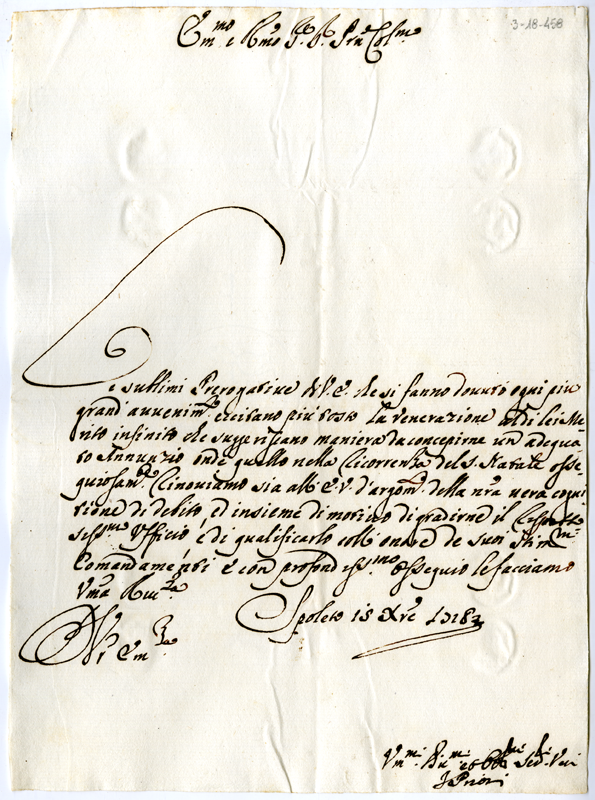 3-18-458
Em.mo e R.mo S.r P.rn Col.mo
Le sublimi Prerogative di V.E. che si fanno dovuto ogni più
grand'avvenim.to eccitano più tosto la venerazione al di lei Me
rito infinito che suggeriscano maniera da concepirne un adequa
to Annunzio onde quello nella Ricorrenza del S. Natale osse
quiosam.te Rinoviamo sia all'E.V. d'argom.to della nra vera cogni
zione di debito, ed insieme di motivo di gradirne il
sess.mo Ufficio, é di qualificarlo coll'onore de suoi Stim.mi
Comandamenti é con profondiss.mo Ossequio le facciamo
Um.a Riv.za
Spoleto 18 Xbre
Di V. Em.za
Um.mi
I Priori